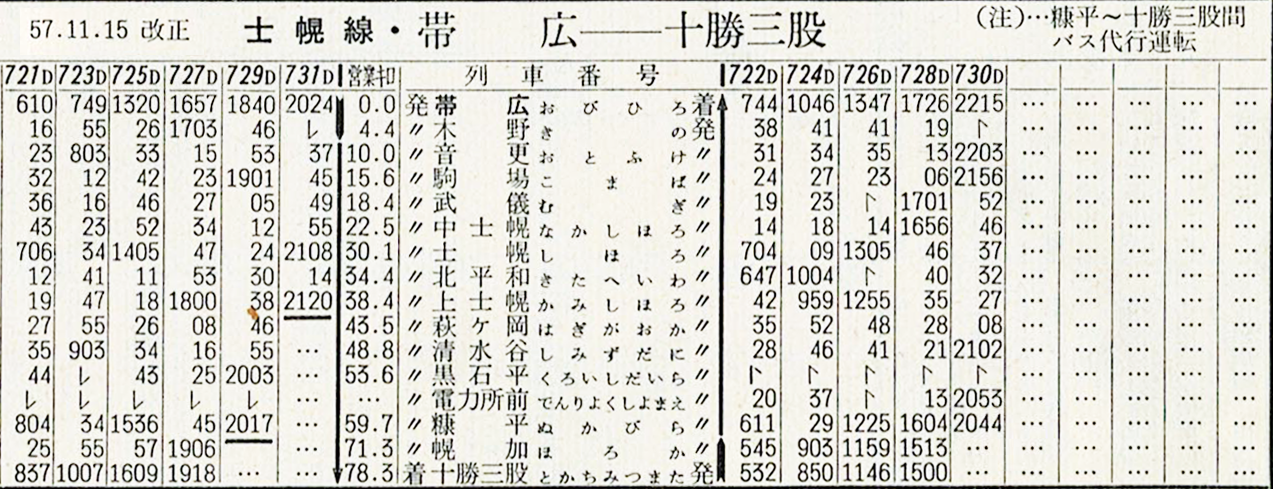 57.11.15 改正 士幌線・帯 広――十勝三股 (注)…糠平～十勝三股間
バス代行運転
721D 723D 725D 727D 729D 731D 営業キロ 列車番号 722D 724D 726D 728D 730D
610 749 1320 1657 1840 2024 0.0 発 帯広 おびひろ 着 744 1046 1347 1726 2215 … … … … …
16 55 26 1703 46 レ 4.4 〃 木野 きの 発 38 41 41 19 レ … … … … …
23 803 33 15 53 37 10.0 〃 音更 おとふけ 〃 31 34 35 13 2203 … … … … …
32 12 42 23 1901 45 15.6 〃 駒場 こまば 〃 24 27 23 06 2156 … … … … …
36 16 46 27 05 49 18.4 〃 武儀 むぎ 〃 19 23 レ 1701 52 … … … … …
43 23 52 34 12 55 22.5 〃 中士幌 なかしほろ 〃 14 18 14 1656 46 … … … … …
706 34 1405 47 24 2108 30.1 〃 士幌 しほろ 〃 704 09 1305 46 37 … … … … …
12 41 11 53 30 14 34.4 〃 北平和 きたへいわ 〃 647 1004 レ 40 32 … … … … …
19 47 18 1800 38 2120 38.4 〃 上士幌 かみしほろ 〃 42 959 1255 35 27 … … … … …
27 55 26 08 46 43.5 〃 萩ケ岡 はぎがおか 〃 35 52 48 28 08 … … … … …
35 903 34 16 55 … 48.8 〃 清水谷 しみずだに 〃 28 46 41 21 2102 … … … … …
44 レ 43 25 2003 … 53.6 〃 黒石平 くろいしだいら 〃 レ レ レ レ レ … … … … …
レ レ レ レ レ … … 〃 電力所前 でんりよくしよまえ 〃 20 37 レ 13 2053 … … … … …
804 34 1536 45 2017 … 59.7 〃 糠平 ぬかびら 〃 611 29 1225 1604 2044 … … … … …
25 55 57 1906 … 71.3 〃 幌加 ほろか 〃 545 903 1159 1513 … … … … … …
837 1007 1609 1918 … … 78.3 着 十勝三股 とかちみつまた 発 532 850 1146 1500 … … … … … …